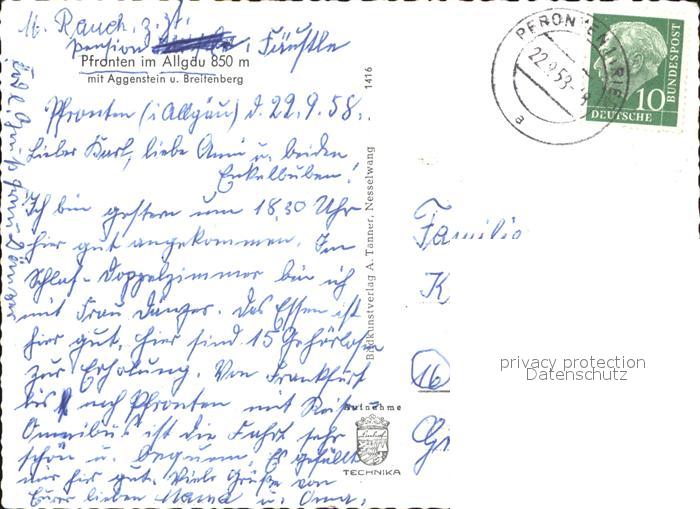 M. Rauch, z. Zt.
Pension Fäustle
Pfronten im Allgäu 850 m
mit Aggenstein u. Breitenberg
Pfronten (i Allgäu) d. 22.9.58.
Lieber Karl, liebe Anni u. beiden
Enkelbuben!
Ich bin gestern um 18,30 Uhr
hier gut angekommen. Im
Schlaf-Doppelzimmer bin ich
mit Frau Dänzer. Das Essen ist
hier gut, hier sind 15 Gehörlose
zur Erholung. Von Frankfurt
bis nach Pfronten mit
Omnibus ist die Fahrt sehr
schön u. bequem. Es gefällt
mir hier gut. Viele Grüße von
Eurer lieben Mama u. Oma.
Frau Dänzer
1416
Bildkunstverlag A. Tanner, Nesselwang
Aufnahme
TECHNIKA
22.9.58
a
10
DEUTSCHE
BUNDESPOST
Familie
K
16
privacy protection
Datenschutz